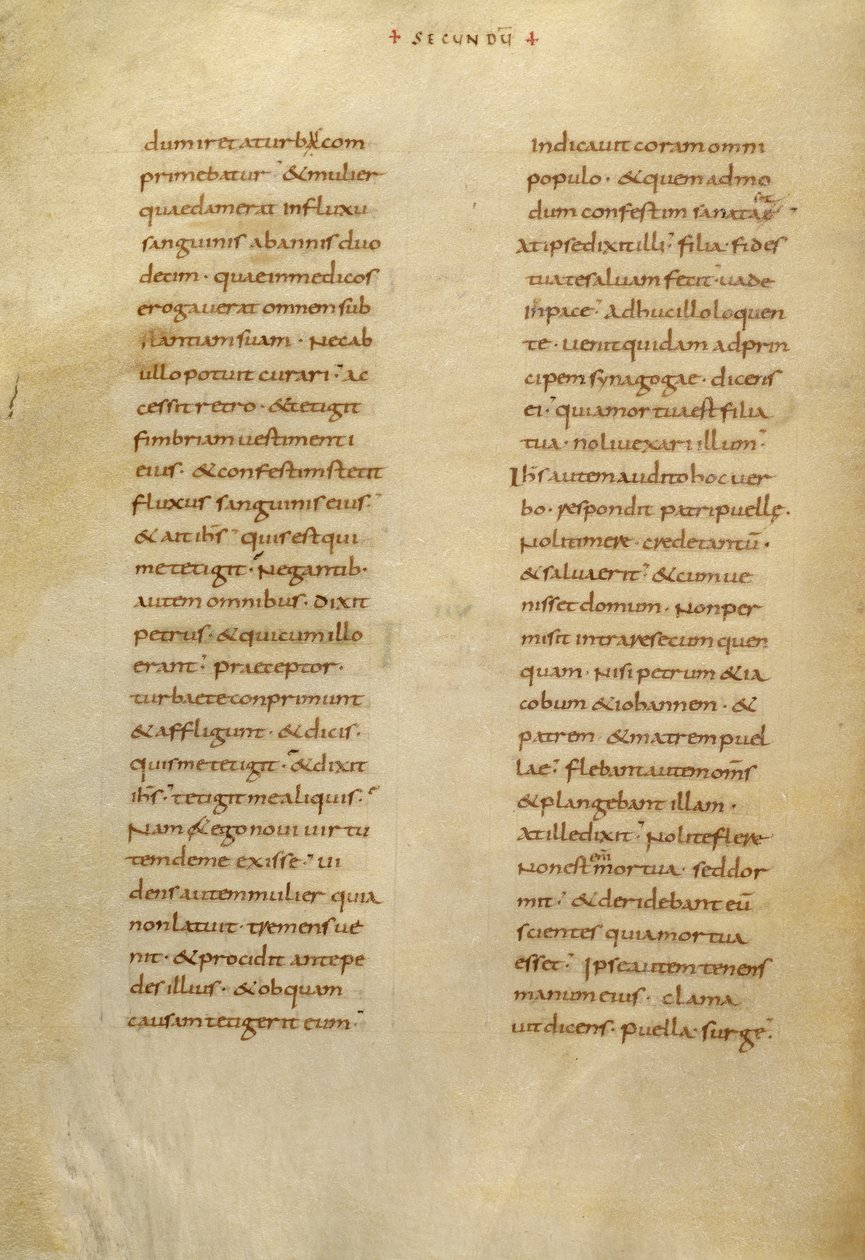 + SECUNDŪ +
dum iret a turbis com
primebatur · & mulier
quaedam erat In fluxu
sanguinis ab annis duo
decim · quae in medicos
erogauerat omnem sub
stantiam suam · Nec ab
ullo potuit curari · ac
cessit retro · & tetigit
fimbriam uestimenti
eius · & confestim stetit
fluxus sanguinis eius ·
& ait ih̄s · quis est qui
me tetigit · Negantib·
autem omnibus · dixit
petrus · & qui cum illo
erant · praeceptor ·
turbae te conprimunt
& affligunt · & dicis ·
quis me tetigit · & dixit
ih̄s · tetigit me aliquis ·
Nam & ego noui uirtu
tem de me exisse · ui
dens autem mulier quia
non latuit · tremens ue
nit · & procidit ante pe
des illius · & ob quam
causam tetigerit eum ·
Indicauit coram omni
populo · & quem ad mo
dum confestim sanata
At ipse dixit illi · filia · fides
tua te saluam fecit · uade
In pace · Adhuc illo loquen
te · uenit quidam ad prin
cipem synagogae · dicens
ei · quia mortua est filia
tua · noli uexari illum ·
Ih̄s autem audito hoc uer
bo · respondit patri puellę ·
Noli timere · crede tantū ·
& salua erit · & cum ue
nisset domum · Non per
misit intrare secum quem
quam · Nisi petrum & ia
cobum & iohannem · &
patrem · & matrem puel
lae · flebant autem om̄s
& plangebant illam ·
At ille dixit · Nolite flere
Non est eni mortua · sed dor
mit · & deridebant eū
scientes quia mortua
esset · Ipse autem tenens
manum eius · clama
uit dicens · puella · surge ·